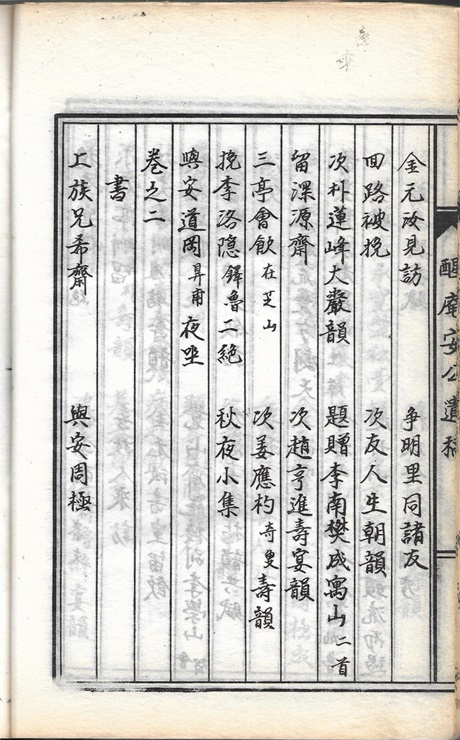 醒庵安公遺稿
金元汝見訪 爭明里同諸友
回路被挽 次友人生朝韻
次朴蓮峰大巖韻 題贈李南樊成寓山二首
留深源齋 次趙亨進壽宴韻
三亭會飮在芝山 次姜應杓奇叟壽韻
挽李洛隱鐸魯二絶 秋夜小集
與安道岡昇甫夜唑
卷之二
書
上族兄希齋 與安周極